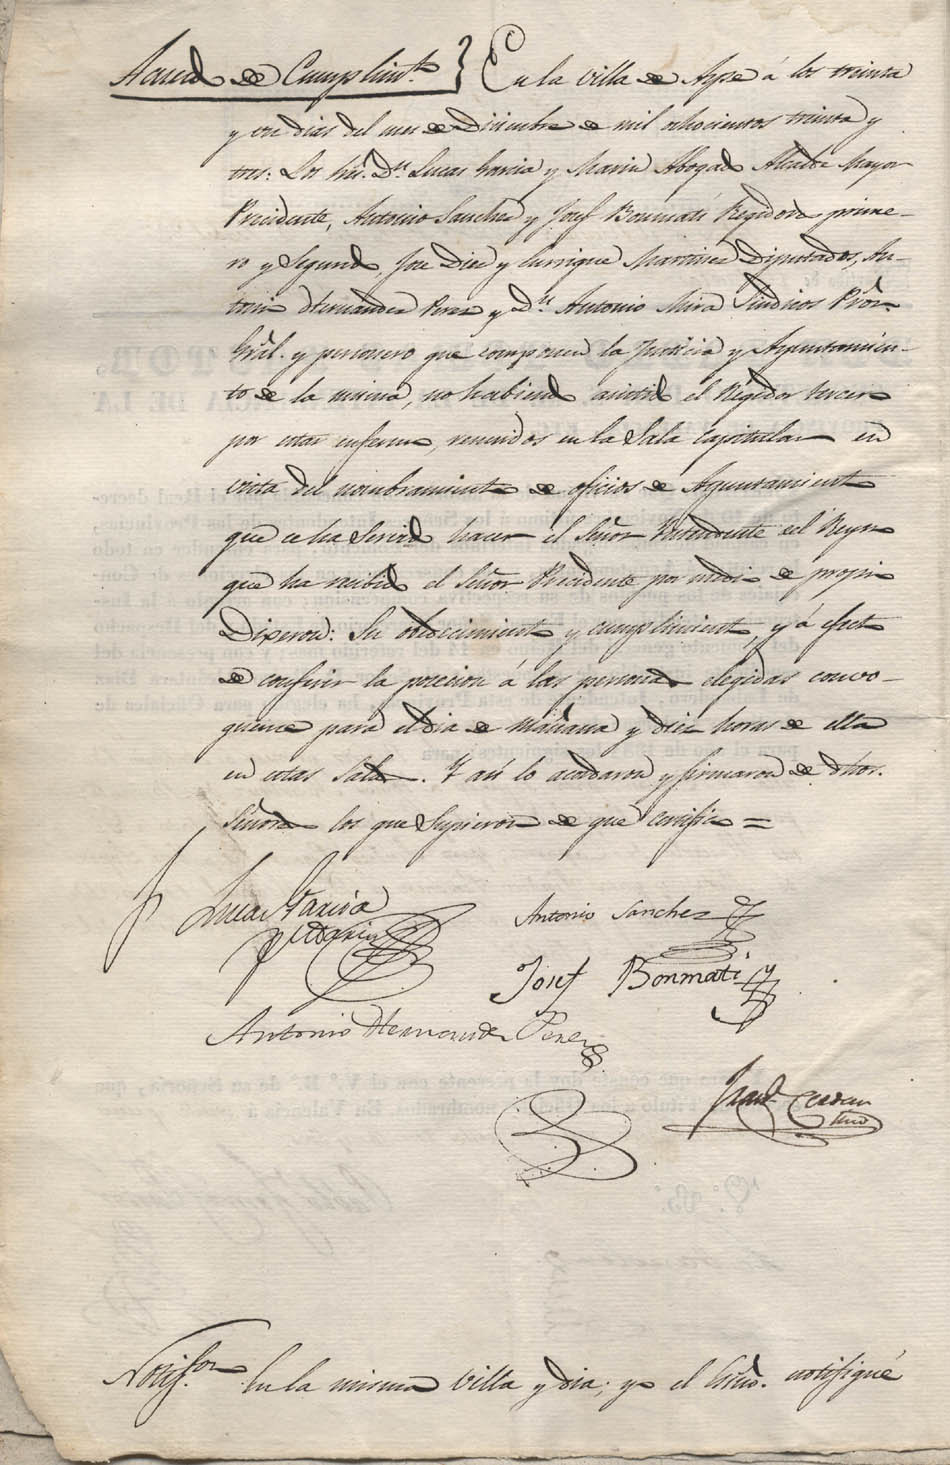 Acuerdo de Cumplimto. } En la Villa de Aspe á los treinta
y un dias del mes de Diciembre de mil ochocientos treinta y
tres: Los Sres. Dn. Lucas Garcia y Maria Abogado Alcalde Mayor
Presidente, Antonio Sanchez y Josef Bonmatí Regidores prime-
ro y Segundo, Jose Diez y Enrrique Martinez Diputados, An-
tonio Hernandez Perez y Dn. Antonio Mira Sindicos Pror.
Gral. y personero que componen la Justicia y Ayuntamien-
to de la misma, no habiendo asistido el Regidor tercero
por estar enfermo, reunidos en la Sala Capitular en
vista del nombramiento de oficios de Ayuntamiento
que se ha Servido hacer el Señor Yntendente del Reyno
que ha recibido el Señor Presidente por medio de propio
Dixeron: Su obedecimiento y cumplimiento, y á efecto
de conferir la posecion á las personas elegidas convo-
quense para el dia de mañana y diez horas de ella
en estas Salas. Y asi lo acordaron y firmaron de dhos.
Señores los que Supieron de que Certifico =
Lucas Garcia
y Maria
Antonio Sanchez
Josef Bonmati
Antonio Hernandez Perez
Notifon. En la misma Villa y dia; yo el Esno. notifiqué